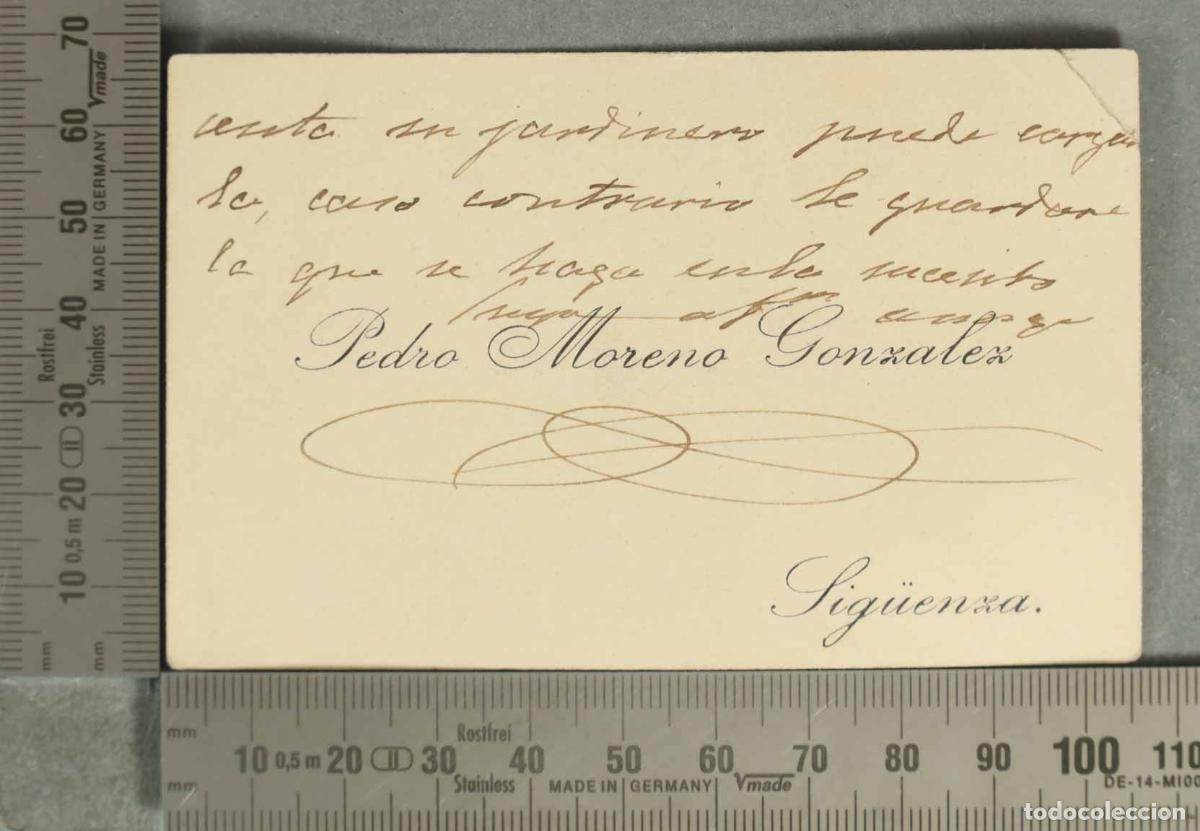 su jardinero puede cargar
la, caso contrario le guardare
la que se haga
suyo af amigo
Pedro Moreno Gonzalez
Sigüenza.
70
60
50
40
30
20
10 0,5 m
MADE IN GERMANY Vmade
Rostfrei
Stainless
mm
mm
mm
mm
10 0,5 m 20 30 40 50 60 70 80 90 100 110
Rostfrei
Stainless
MADE IN GERMANY Vmade
DE-14-MI00
todocoleccion